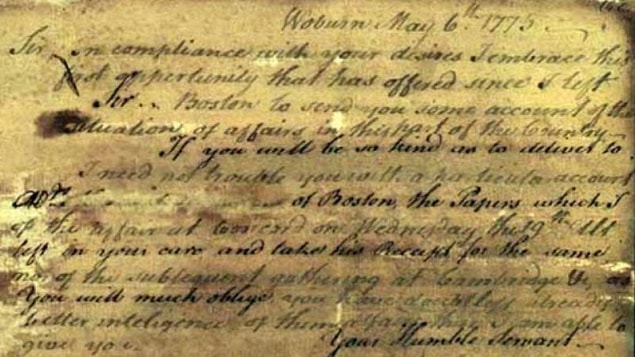 Woburn May 6th 1775
Sir in compliance with your desires I embrace this
first opportunity that has offered since I left
Sir.. Boston to send you some account of the
situation of affairs in this part of the Country
If you will be so kind as to deliver to
I need not trouble you with a particular account
of Boston, the Papers which I
of the affair at Concord on Wednesday the 19th Ult
left in your care and take his Receipt for the same
nor of the subsequent gathering at Cambridge &c as
You will much oblige, you have doubtless already
better inteligence of than I am able to
Your Humble Servant
give you.